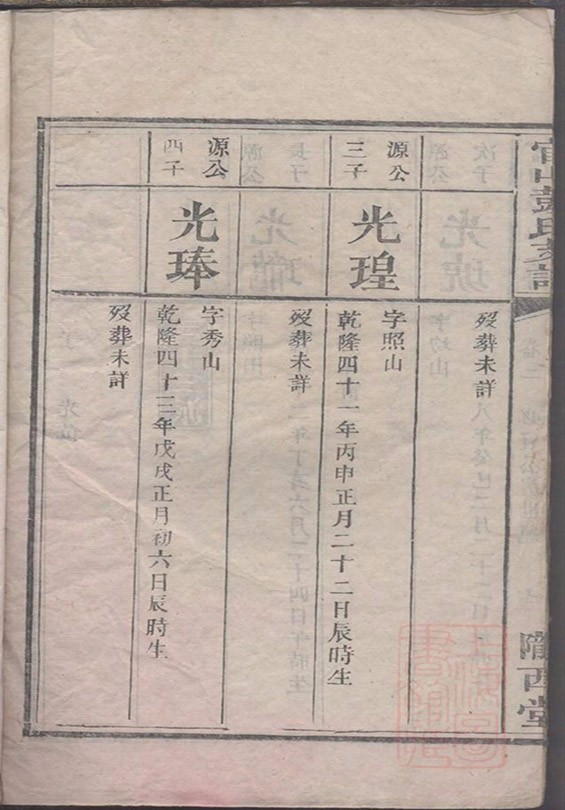 官山彭氏支譜
隴西堂
歿葬未詳
源公
三子
光瑝
字照山
乾隆四十一年丙申正月二十二日辰時生
歿葬未詳
源公
四子
光琫
字秀山
乾隆四十三年戊戌正月初六日辰時生
歿葬未詳